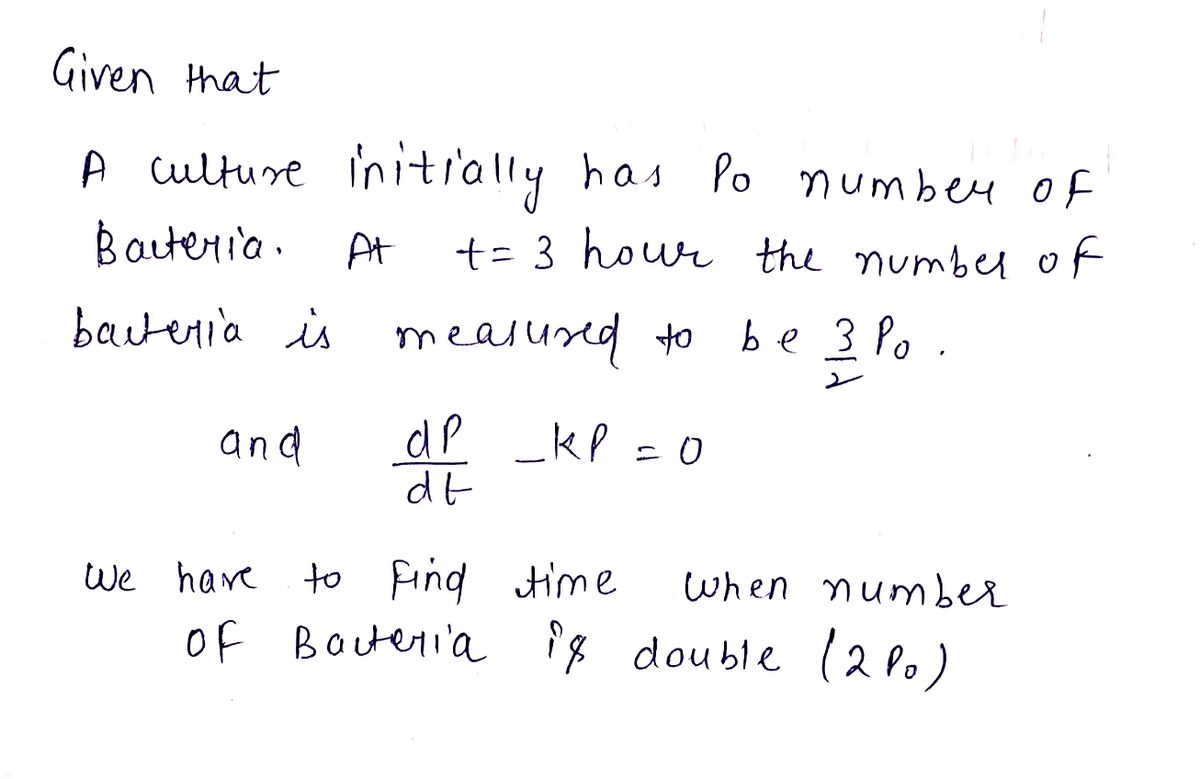 Given that
A culture initially has P₀ number of
Bacteria. At t = 3 hour the number of
bacteria is measured to be 3/2 P₀ .
and dP/dt - kP = 0
We have to Find time when number
of Bacteria is double (2 P₀)